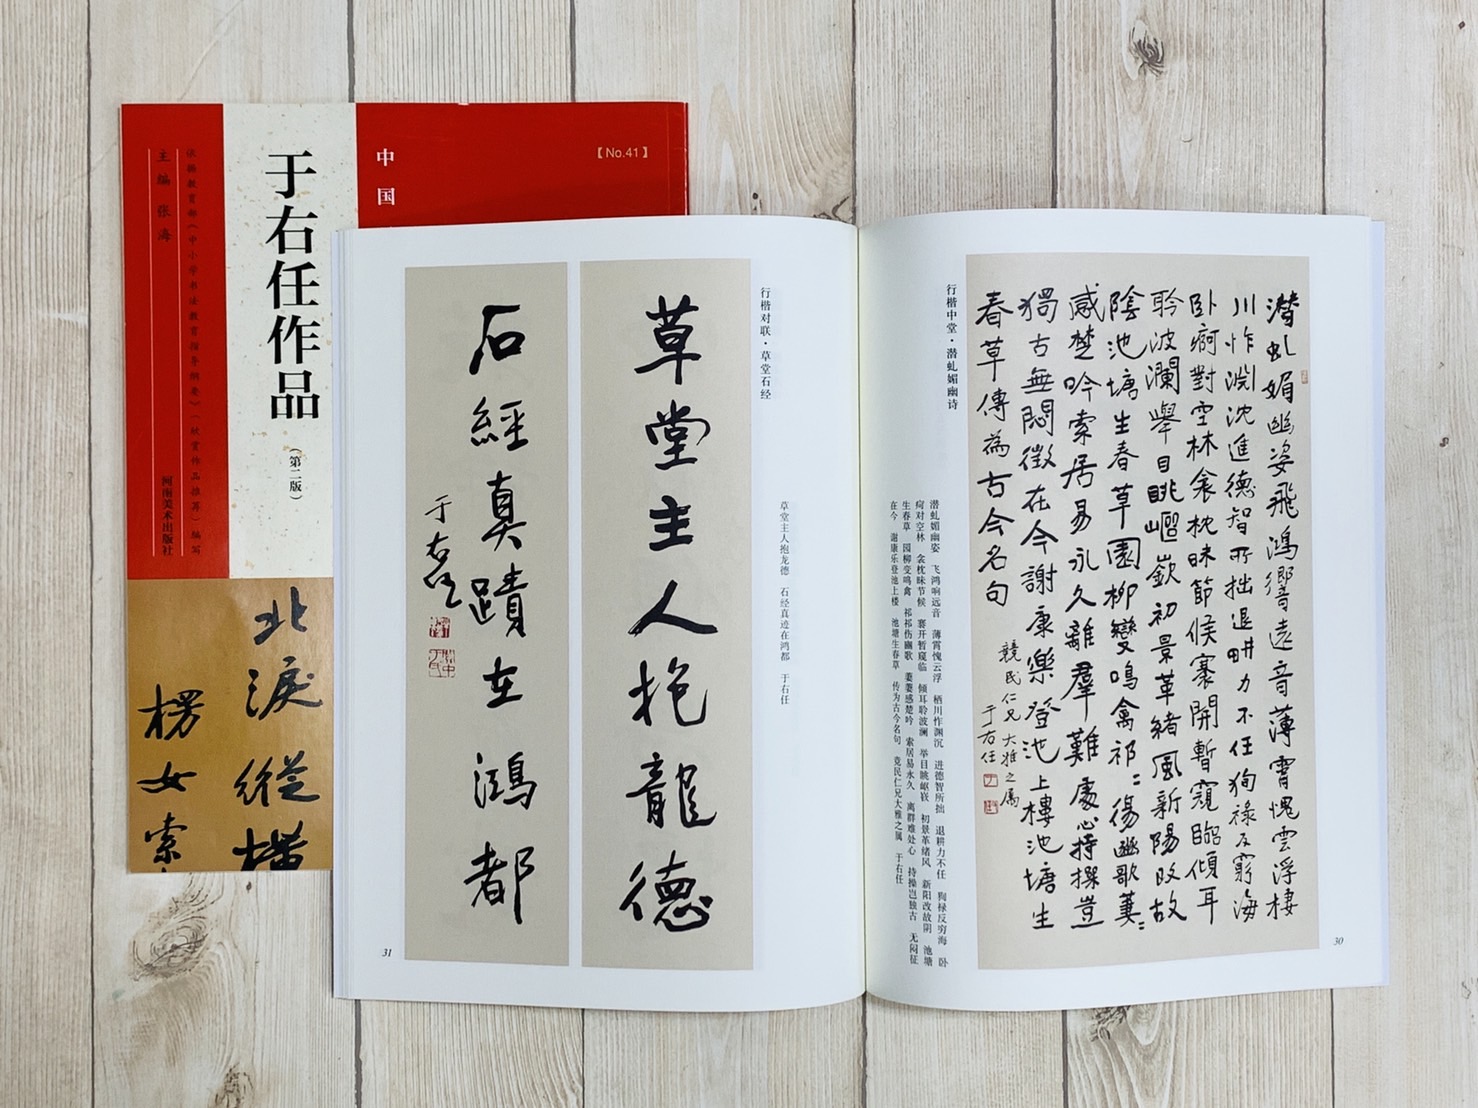 中国
【No.41】
于右任作品
（第二版）
依据教育部《中小学书法教育指导纲要》（欣赏作品推荐）编写
主编 张海
河南美术出版社
北
淚
縱
橫
楞
女
索
行楷中堂·潜虬媚幽诗
潛虬媚幽姿飛鴻響遠音薄霄愧雲浮棲
川怍淵沈進德智所拙退耕力不任狥祿反窮海
卧痾對空林衾枕昧節候褰開暫窺臨傾耳
聆波瀾舉目眺嶇嶔初景革緒風新陽改故
陰池塘生春草園柳變鳴禽祁〻傷幽歌萋〻
感楚吟索居易永久離羣難處心持操豈
獨古無悶徵在今謝康樂登池上樓池塘生
春草傳為古今名句
競民仁兄大雅之属
于右任
潜虬媚幽姿 飞鸿响远音 薄霄愧云浮 栖川怍渊沉 进德智所拙 退耕力不任 狥禄反穷海 卧
疴对空林 衾枕昧节候 褰开暂窥临 倾耳聆波澜 举目眺岖嵚 初景革绪风 新阳改故阴 池塘
生春草 园柳变鸣禽 祁祁伤幽歌 萋萋感楚吟 索居易永久 离群难处心 持操岂独古 无闷征
在今 谢康乐登池上楼 池塘生春草 传为古今名句 竞民仁兄大雅之属 于右任
30
行楷对联·草堂石经
草堂主人抱龍德
石經真蹟在鴻都
于右任
草堂主人抱龙德 石经真迹在鸿都 于右任
31